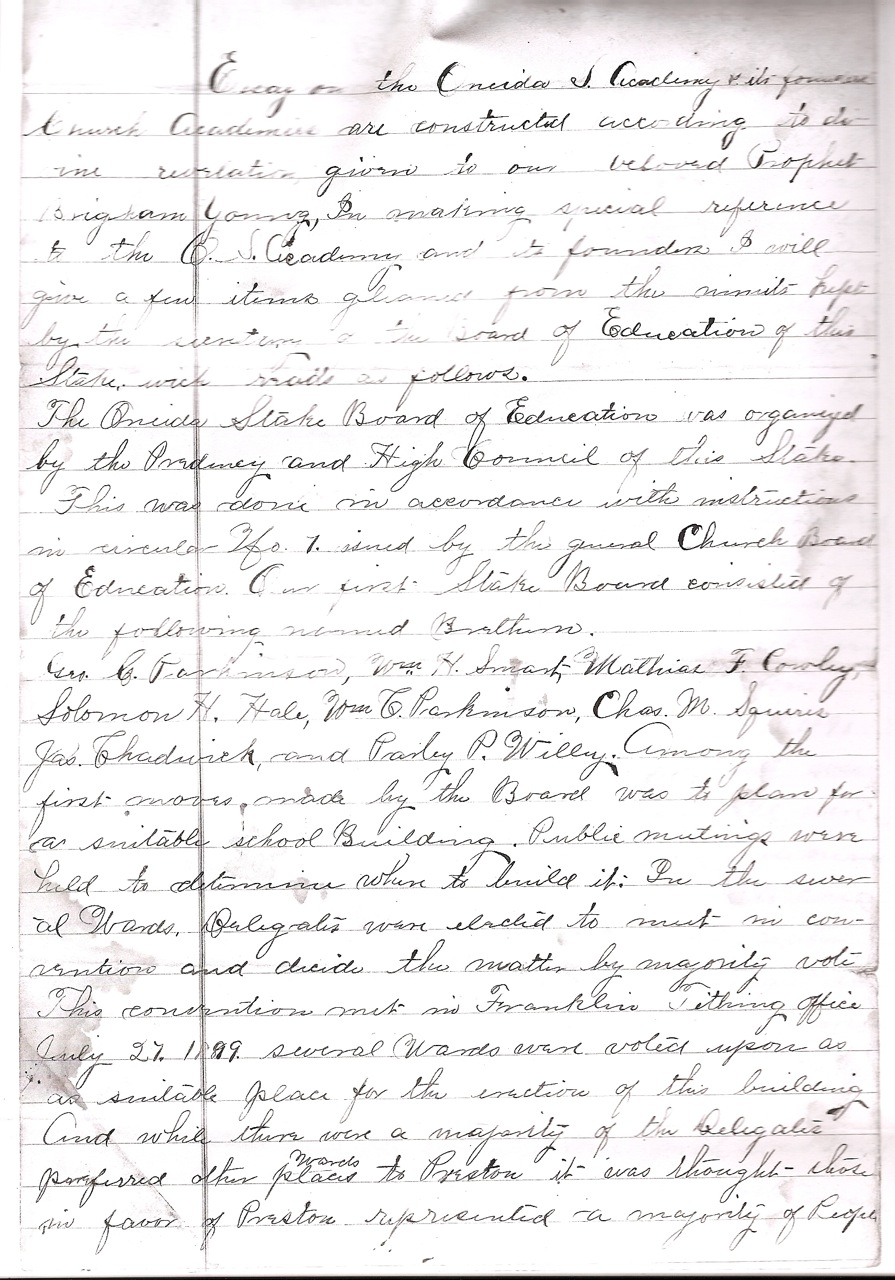 Essay on the Oneida S. Academy & its founders
Church Academies are constructed according to di-
vine revelation given to our beloved Prophet
Brigham Young, In making special reference
to the O. S. Academy and its founders I will
give a few items gleaned from the minits kept
by the secretary of the Board of Education of this
Stake. wich reads as follows.
The Oneida Stake Board of Education was organized
by the and High Council of this Stake.
This was done in accordance with instructions
in circular No. 1. issued by the general Church Board
of Education. Our first Stake Board consisted of
the following named Brethern.
Geo. C. Parkinson, Wm H. Smart, Mathias F. Cowley,
Solomon H. Hale, Wm C. Parkinson, Chas. M. Squires
Jas. Chadwick, and Parley P. Willey. Among the
first moves, made by the Board was to plan for
a suitable school Building. Public meetings were
held to determine where to build it: In the sever
al Wards. Delegates were elected to meet in con-
vention and decide the matter by majority vote
This convention met in Franklin Tithing office
July 27. several Wards were voted upon as
as suitable place for the erection of this building
And while there were a majority of the Delegates
preferred other places Wards to Preston it was thought those
in favor of Preston represented a majority of People